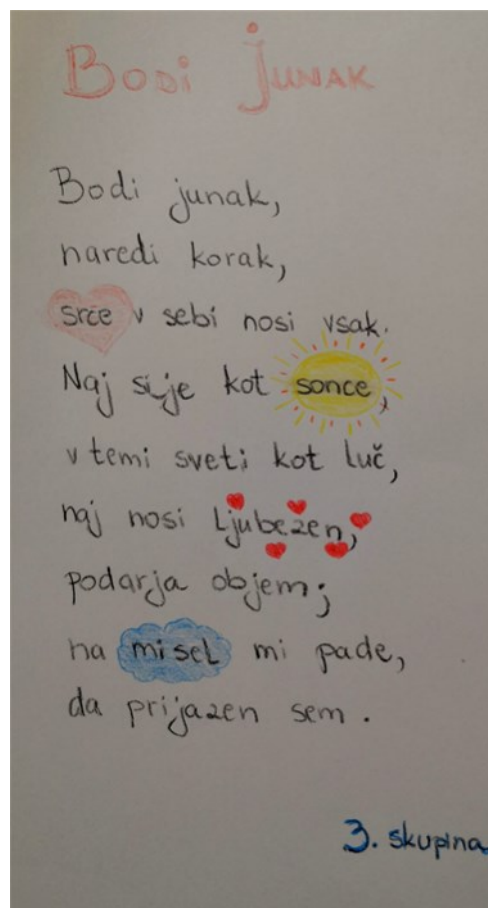 Bodi Junak
Bodi junak,
naredi korak,
srce v sebi nosi vsak.
Naj sije kot sonce,
v temi sveti kot luč,
naj nosi Ljubezen,
podarja objem;
na misel mi pade,
da prijazen sem.
3. skupina